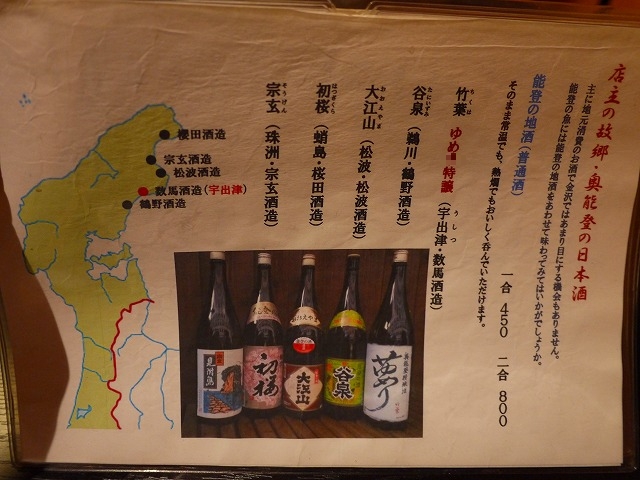 店主の故郷・奥能登の日本酒
主に地元消費のお酒で金沢ではあまり目にする機会もありません。
能登の魚には能登の地酒をあわせて味わってみてはいかがでしょうか。
能登の地酒(普通酒)
一合 450 二合 800
そのまま常温でも、熱燗でもおいしく呑んでいただけます。
竹葉 ゆめ 特醸 (宇出津・数馬酒造)
ちくは うしつ
谷泉 (鵜川・鶴野酒造)
たにいずみ
大江山 (松波・松波酒造)
おおえやま
初桜 (蛸島・桜田酒造)
はつざくら
宗玄 (珠洲・宗玄酒造)
そうげん
櫻田酒造
宗玄酒造
松波酒造
数馬酒造(宇出津)
鶴野酒造
初桜
大江山
谷泉